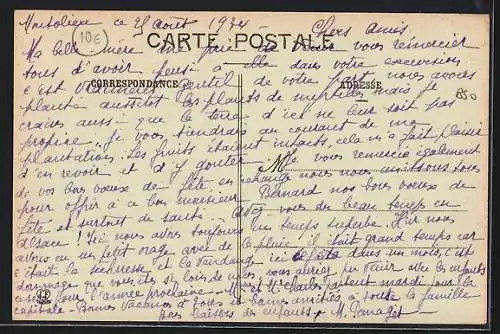 Montolieu ce 25 Août 1934
10€
Chers Amis
CARTE POSTALE
Ma belle mère me prie de vous remercier
tous d'avoir pensé à elle dans votre excursion
CORRESPONDANCE
ADRESSE
C'est gentil de votre part, nous avons
planté aussitôt les plants de myrtilles mais je
B50
crains aussi que la terre d'ici ne leur soit pas
propice. Je vous tiendrai au courant de ma
plantation. Les fruits étaient intacts, cela m'a fait plaisir
d'en revoir et d'y goûter. Je vous remercie également
de vos bons vœux de fête, en échange nous nous unissons tous
pour offrir à ce bon monsieur Bernard nos bons vœux de
fête et surtout de santé. Avez vous du beau temps en
Alsace? Ici nous avons toujours un temps superbe. Hier nous
avons eu un petit orage avec de la pluie, il était grand temps car
c'était la sécheresse et la vendange ici dans un mois, c'est
dommage que vous êtes si loin de nous, vous auriez pu venir avec les enfants
pour l'année prochaine. Mr et Mme Charles partent mardi pour la
capitale. Bonnes Vacances à tous et bonnes amitiés à toute la famille
Bons baisers des enfants. M.